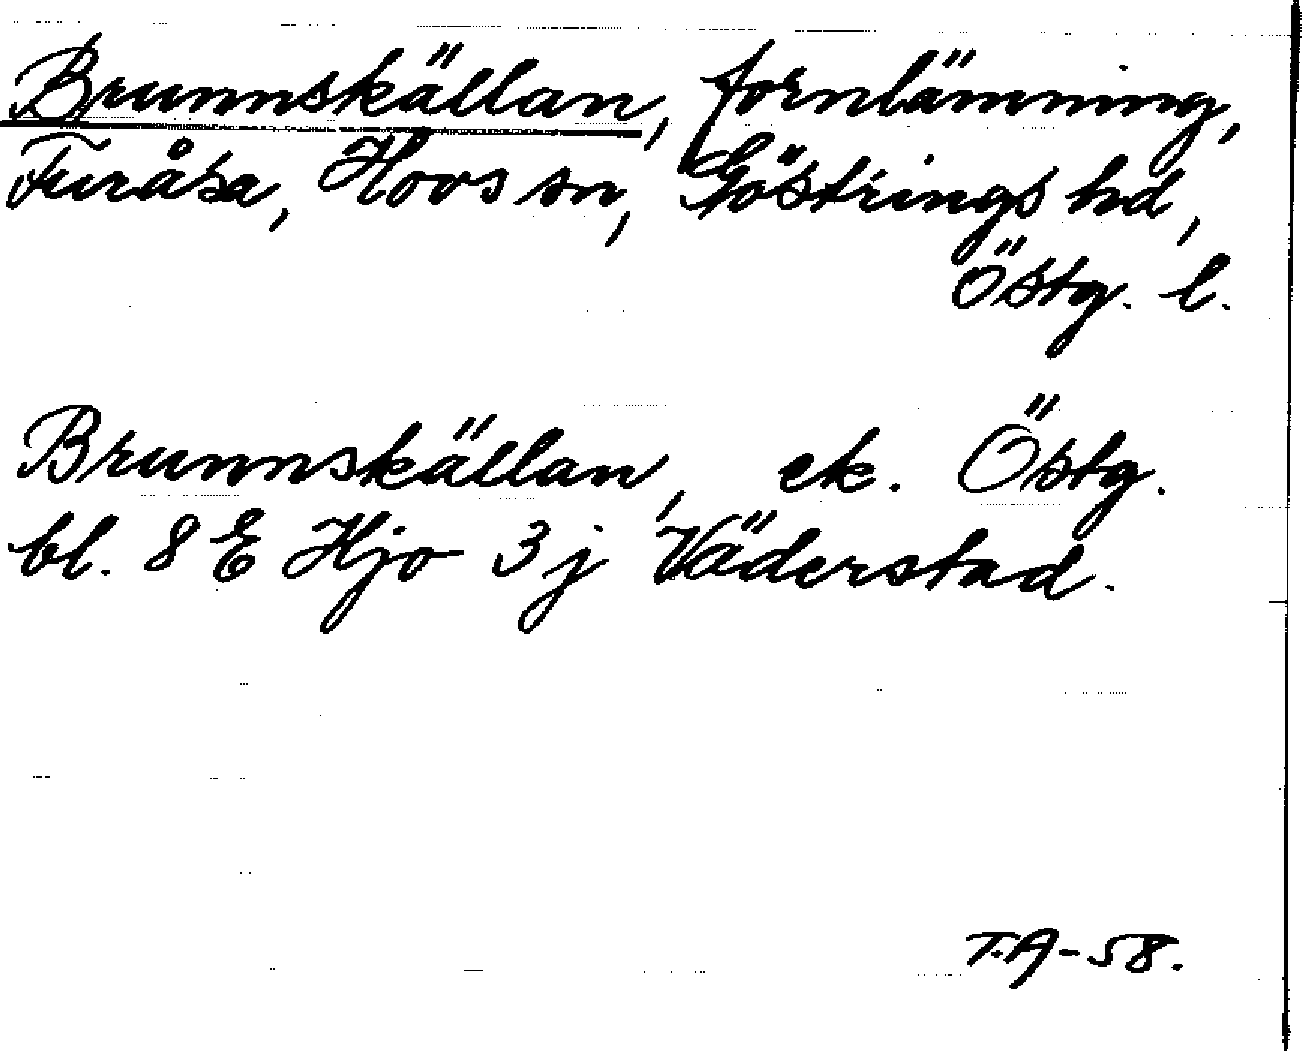 Brunnskällan, fornlämning,
Furåsa, Hovs sn, Göstrings hd,
Östg. l.
Brunnskällan, ek. Östg.
bl. 8 E Hjo 3j Väderstad.
T.A-58.